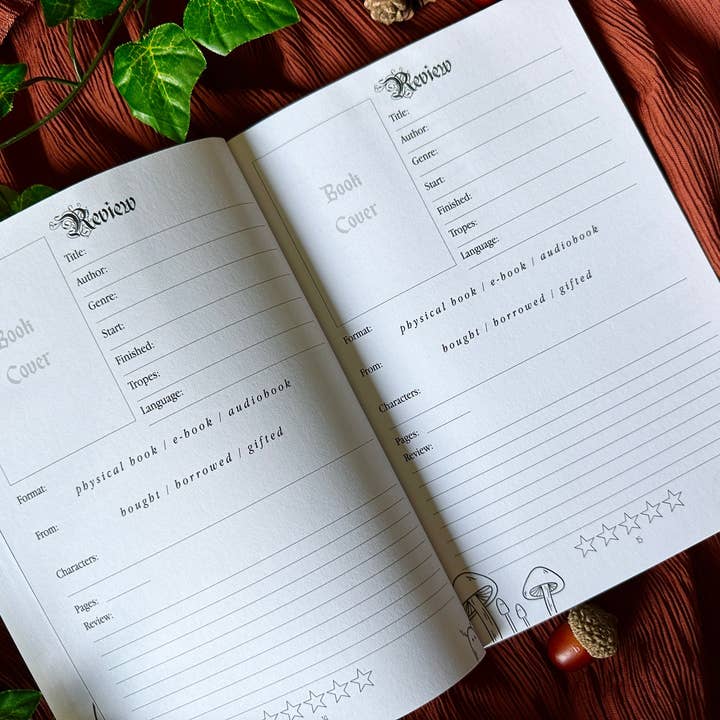 Review
Book
Cover
Title:
Author:
Genre:
Start:
Finished:
Tropes:
Language:
Format: physical book / e-book / audiobook
From: bought / borrowed / gifted
Characters:
Pages:
Review:
Review
Book
Cover
Title:
Author:
Genre:
Start:
Finished:
Tropes:
Language:
Format: physical book / e-book / audiobook
From: bought / borrowed / gifted
Characters:
Pages:
Review:
15